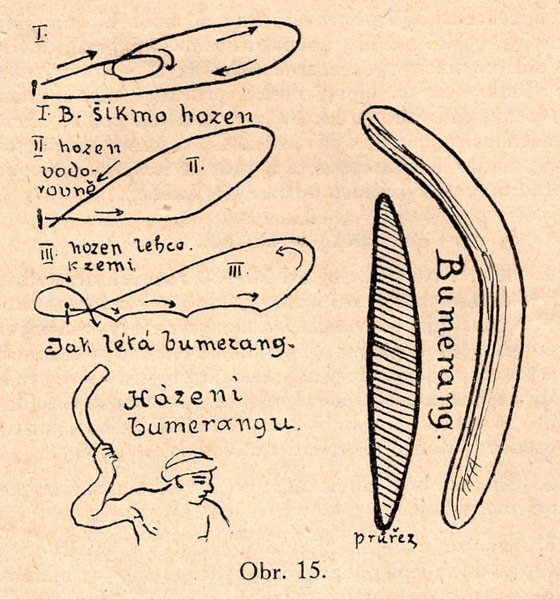 I.
I. B. šikmo hozen
II hozen
vodo-
rovně
II.
III. hozen lehce.
k zemi
III.
Jak létá bumerang.
Házení
bumerangu.
Bumerang.
průřez
Obr. 15.